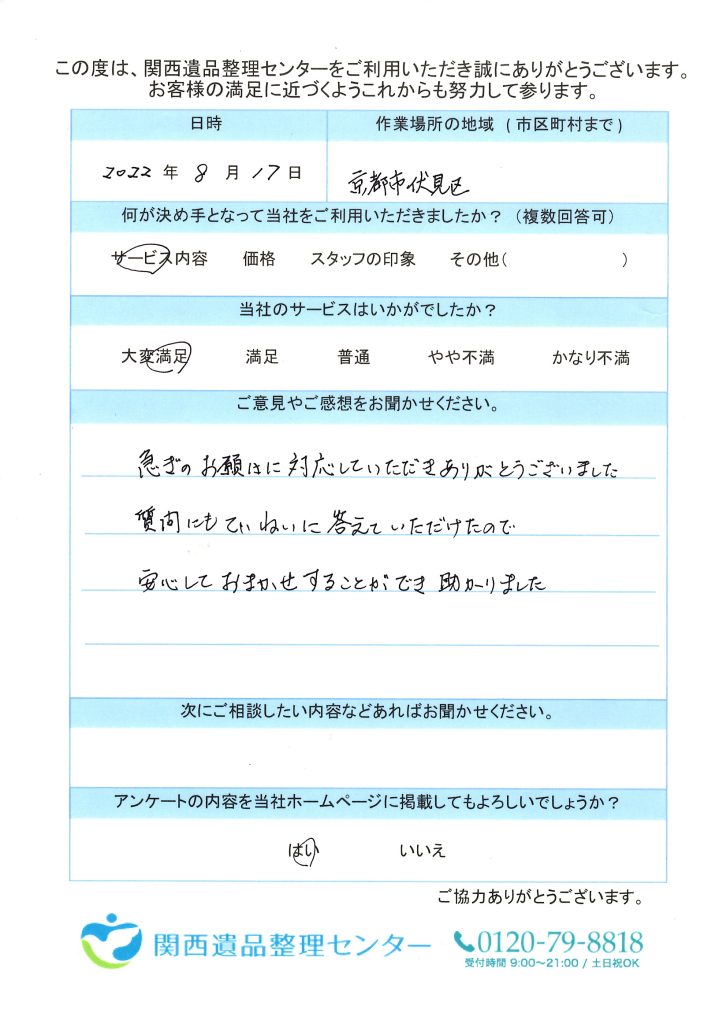 この度は、関西遺品整理センターをご利用いただき誠にありがとうございます。
お客様の満足に近づくようこれからも努力して参ります。
日時
作業場所の地域 (市区町村まで)
2022 年 8 月 17 日
京都市伏見区
何が決め手となって当社をご利用いただきましたか？（複数回答可）
サービス内容 価格 スタッフの印象 その他( )
当社のサービスはいかがでしたか？
大変満足 満足 普通 やや不満 かなり不満
ご意見やご感想をお聞かせください。
急ぎのお願いに対応していただきありがとうございました
質問にもていねいに答えていただけたので
安心しておまかせすることができ助かりました
次にご相談したい内容などあればお聞かせください。
アンケートの内容を当社ホームページに掲載してもよろしいでしょうか？
はい いいえ
ご協力ありがとうございます。
関西遺品整理センター
0120-79-8818
受付時間 9:00〜21:00 / 土日祝OK